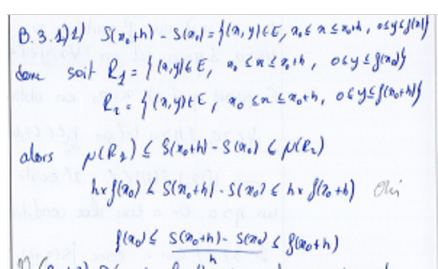 B.3.1)1) S(x₀+h) - S(x₀) = {(x,y)∈E, x₀ ≤ x ≤ x₀+h, 0≤y≤f(x)}
donc soit R₁ = {(x,y)∈E, x₀ ≤ x ≤ x₀+h, 0≤y≤f(x₀)}
R₂ = {(x,y)∈E, x₀ ≤ x ≤ x₀+h, 0≤y≤f(x₀+h)}
alors μ(R₁) ≤ S(x₀+h) - S(x₀) ≤ μ(R₂)
h×f(x₀) ≤ S(x₀+h) - S(x₀) ≤ h× f(x₀+h) Oui
f(x₀) ≤ S(x₀+h) - S(x₀) / h ≤ f(x₀+h)